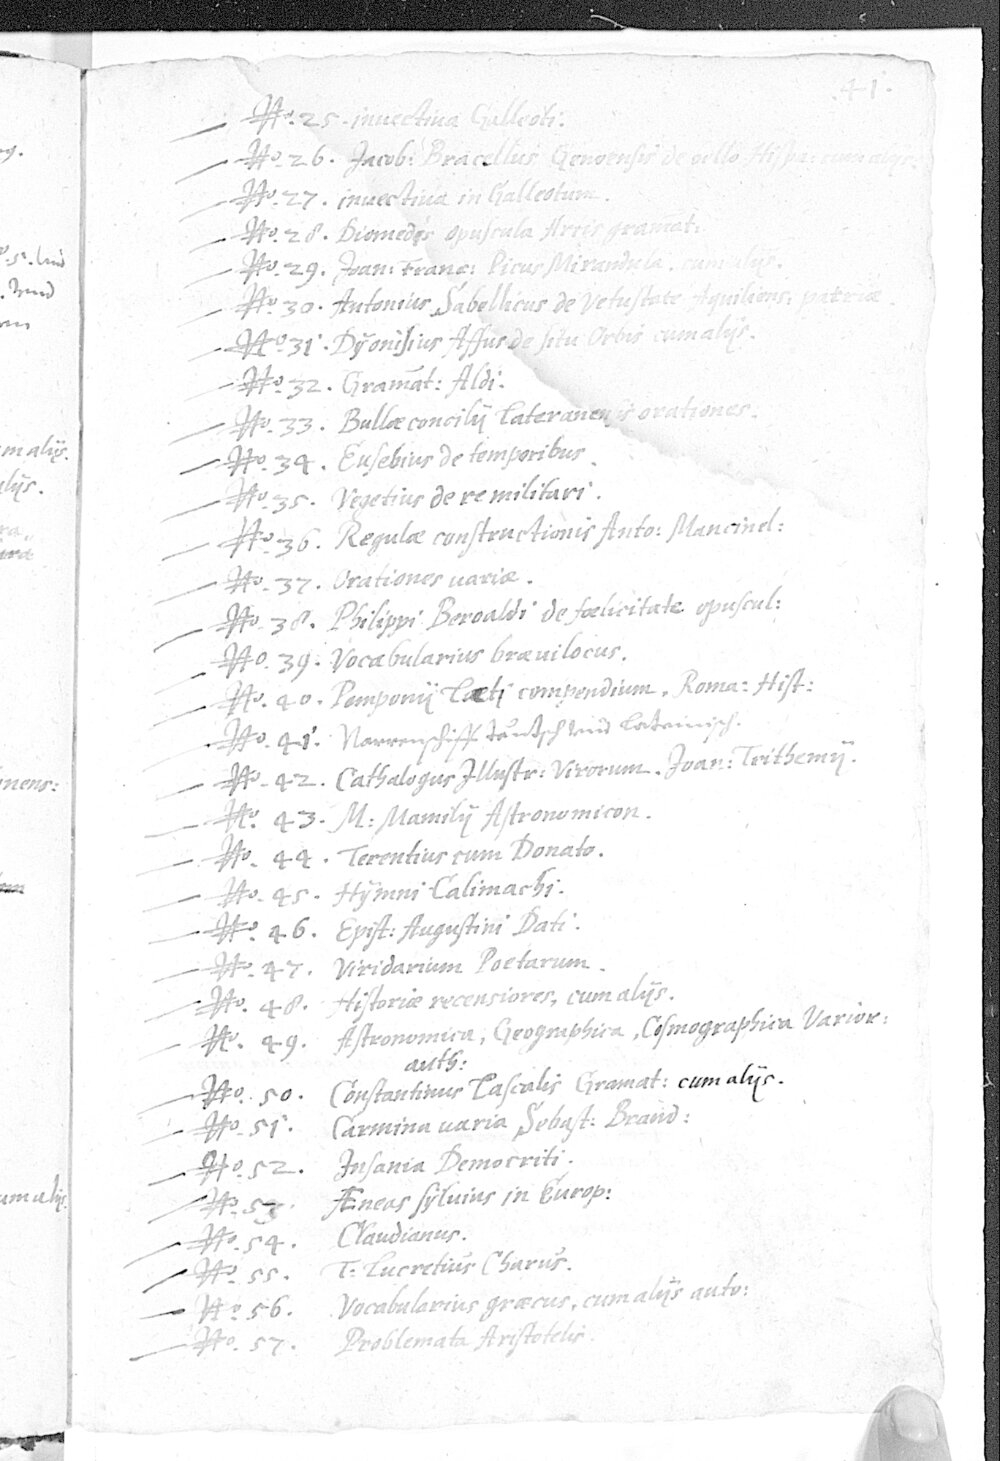 41.
No. 25. invectiva Galleoti:
No. 26. Jacob: Bracellus Genoensis de bello Hispa: cum alijs.
No. 27. invectiva in Galleotum.
No. 28. Diomedis opuscula Artis gramat:
No. 29. Joan: Franc: Picus Mirandula. cum alijs.
No. 30. Antonius Sabellicus de Vetustate Aquiliens: patriæ.
No. 31. Dÿonisius Affus de situ Orbis cum alijs.
No. 32. Gramat: Aldi:
No. 33. Bullæ concilÿ Lateranensis orationes.
No. 34. Eusebius de temporibus.
No. 35. Vegetius de re militari.
No. 36. Regulæ constructionis Anto: Mancinel:
No. 37. Orationes variæ.
No. 38. Philippi Beroaldi de fœlicitate opuscul:
No. 39. Vocabularius brævilocus.
No. 40. Pomponÿ Læti compendium. Roma: Hist:
No. 41. Narrenschiff teütsch und Lateinisch.
No. 42. Cathalogus Jllustr: Virorum. Joan: Trithemÿ.
No. 43. M: Mamilÿ Astronomicon.
No. 44. Terentius cum Donato.
No. 45. Hÿmni Calimachi.
No. 46. Epist: Augustini Dati.
No. 47. Viridarium Poetarum.
No. 48. Historiæ recensiores, cum alijs.
No. 49. Astronomica, Geographica, Cosmographica Varior:
auth:
No. 50. Constantinus Lascalis Gramat: cum alijs.
No. 51. Carmina varia Sebast: Brand:
No. 52. Jnsania Democriti.
No. 53. Æneas sylvius in Europ:
No. 54. Claudianus.
No. 55. T: Lucretius Charus.
No. 56. Vocabularius græcus, cum alijs auto:
No. 57. Problemata Aristotelis.